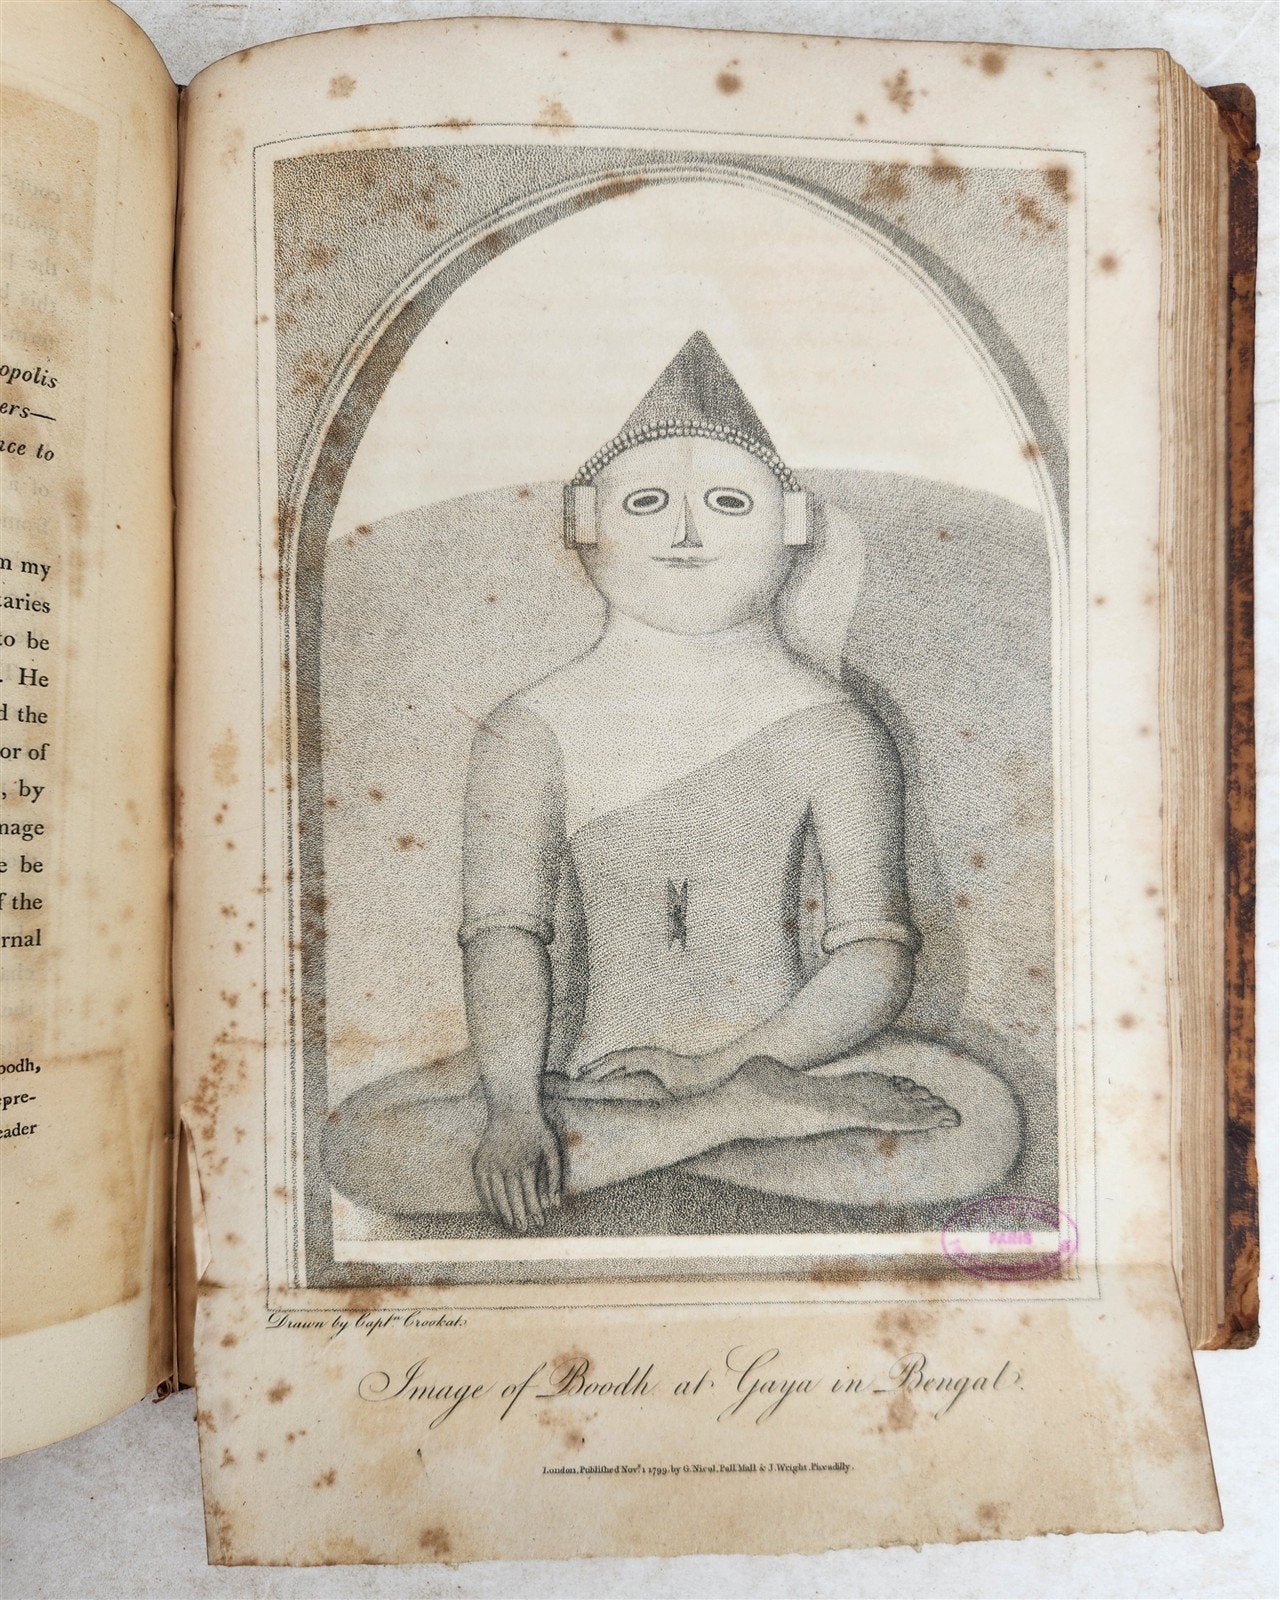 opolis
ers—
nce to
n my
taries
to be
. He
d the
or of
, by
mage
e be
f the
rnal
oodh,
epre-
eader
PARIS
Drawn by Captn. Crookat.
Image of Boodh at Gaya in Bengal.
London, Published Novr. 1 1799, by G. Nicol, Pall Mall & J. Wright, Piccadilly.